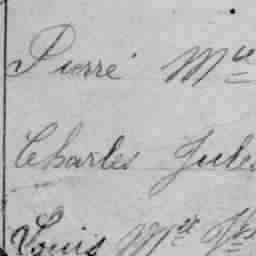 Pierre Mce
Charles Jules
Louis Mst